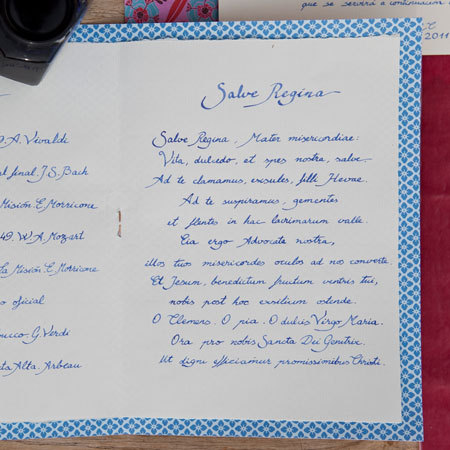 que se servirá a continuación
2011
A. Vivaldi
final. J.S. Bach
Misión. E. Morricone
49. W.A. Mozart
La Misión. E. Morricone
oficial
G. Verdi
Alta. Arbeau
Salve Regina
Salve Regina, Mater misericordiae:
Vita, dulcedo, et spes nostra, salve.
Ad te clamamus, exsules, filli Hevae.
Ad te suspiramus, gementes
et flentes in hac lacrimarum valle.
Eia ergo Advocata nostra,
illos tuos misericordes oculos ad nos converte.
Et Jesum, benedictum fructum ventris tui,
nobis post hoc exsilium ostende.
O Clemens. O pia. O dulcis Virgo Maria.
Ora pro nobis Sancta Dei Genitrix.
Ut digni efficiamur promissionibus Christi.